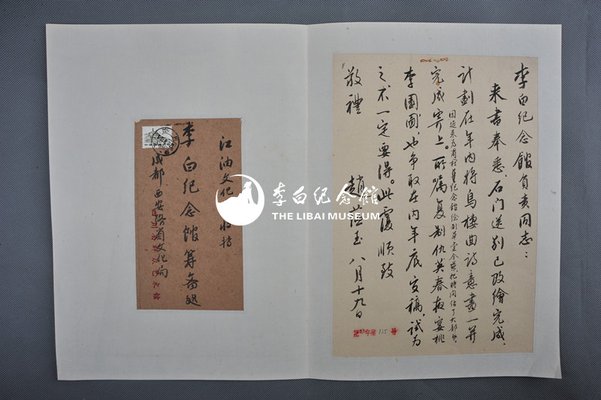 李白纪念馆负责同志：
来书奉悉，石门送别已改绘完成，
计划在年内将乌楼回诗意画一并
完成寄上。所嘱复制仇英春夜宴桃
李园图，也争取在内年底定稿，试为
之不一定要得。此覆 顺致
敬禮
趙蕴玉 八月十九日
江油文化
收转
李白纪念馆筹备组
成都西安路省文化局
李白纪念馆
THE LIBAI MUSEUM